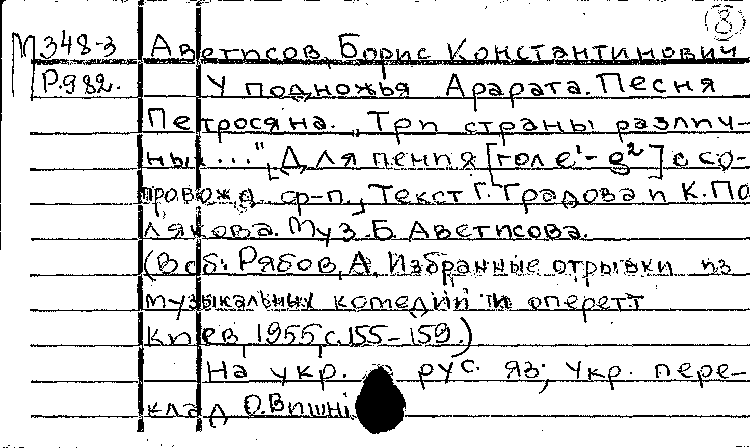 8
М348-3 Аветисов, Борис Константинович
Р.982. У подножья Арарата. Песня
Петросяна. „Три страны различ-
ных...", [Для пения [гол e¹-g²] с со-
провожд. ф-п.], Текст Г. Градова и К. По
лякова. Муз. Б. Аветисова.
(В сб: Рябов, А. Избранные отрывки из
музыкальных комедий и оперетт
Киев, 1955, с. 155-159.)
На укр. рус. яз; укр. пере-
клад О. Вишні